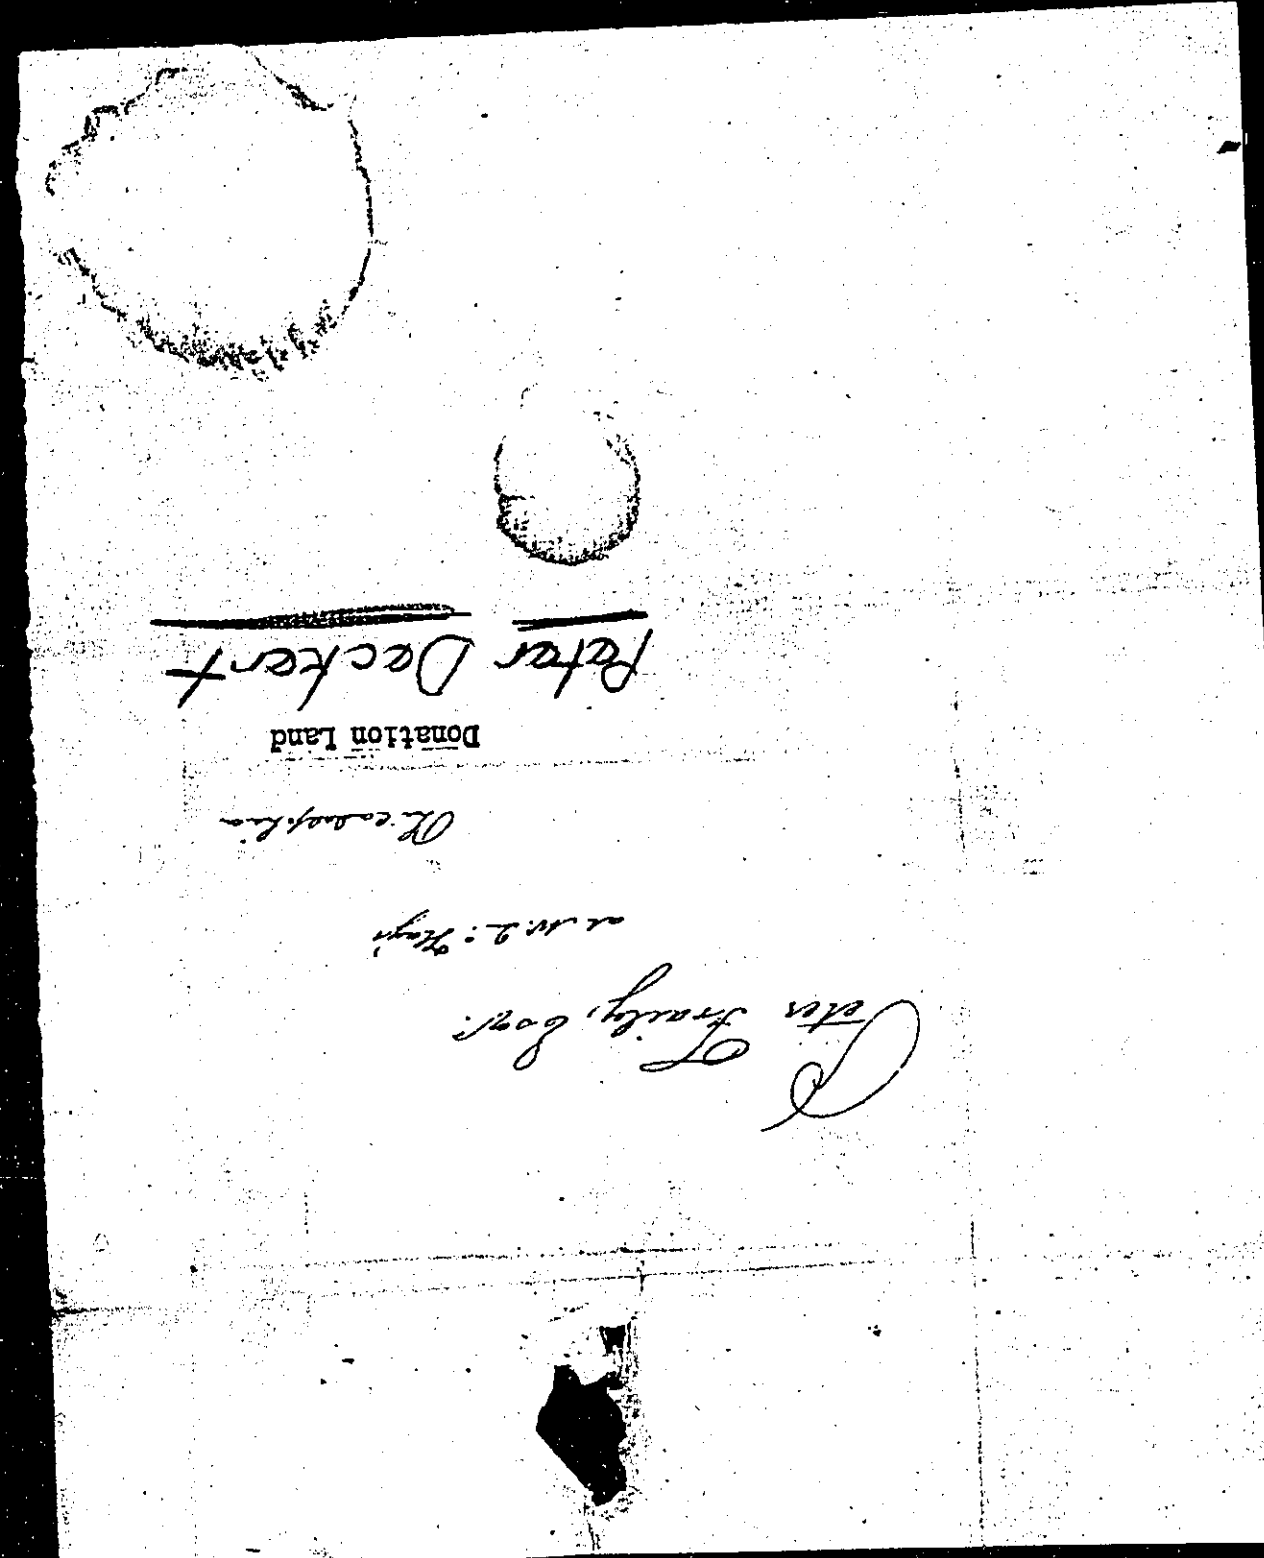 Peter Fraily, Esqr.
at Mr.
Donation Land
Peter Deckert